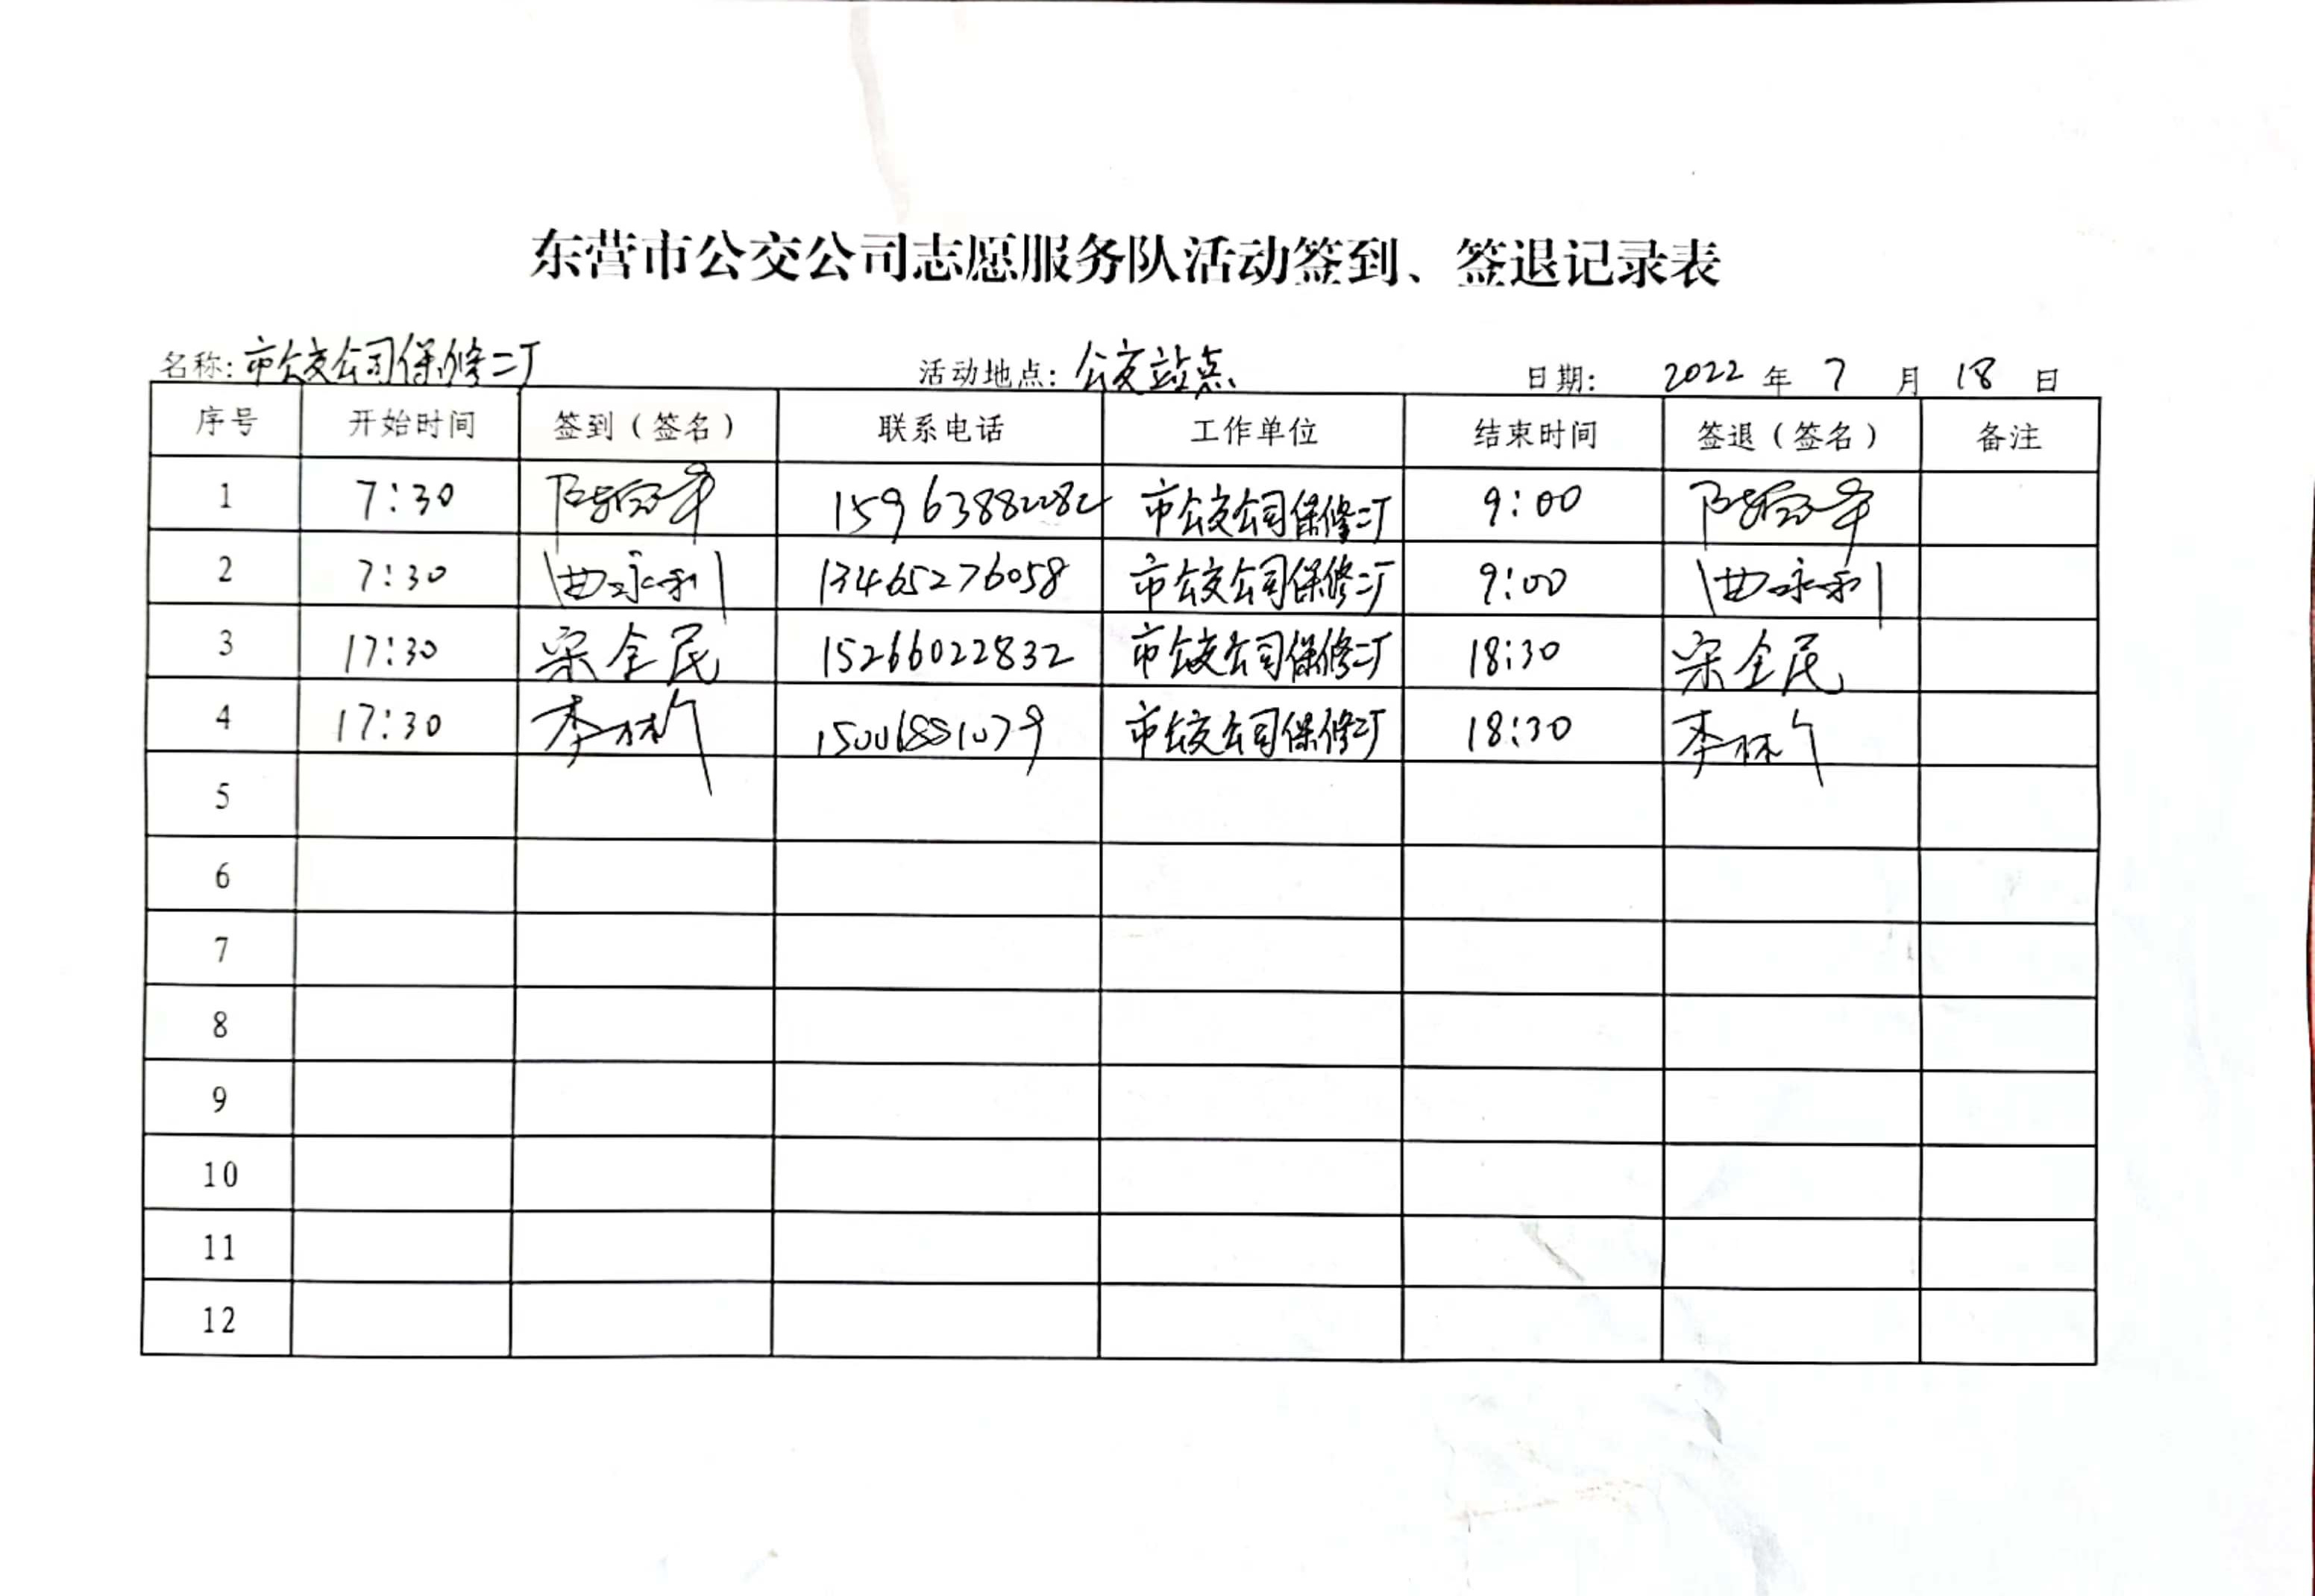 东营市公交公司志愿服务队活动签到、签退记录表
名称:市公交公司保修二厂 活动地点:公交站点 日期: 2022 年 7 月 18 日
序号 开始时间 签到（签名） 联系电话 工作单位 结束时间 签退（签名） 备注
1 7:30 15963882282 市公交公司保修二厂 9:00
2 7:30 曲永利 13465276058 市公交公司保修二厂 9:00 曲永利
3 17:30 宋全民 15266022832 市公交公司保修二厂 18:30 宋全民
4 17:30 李林 15006881079 市公交公司保修二厂 18:30 李林
5
6
7
8
9
10
11
12